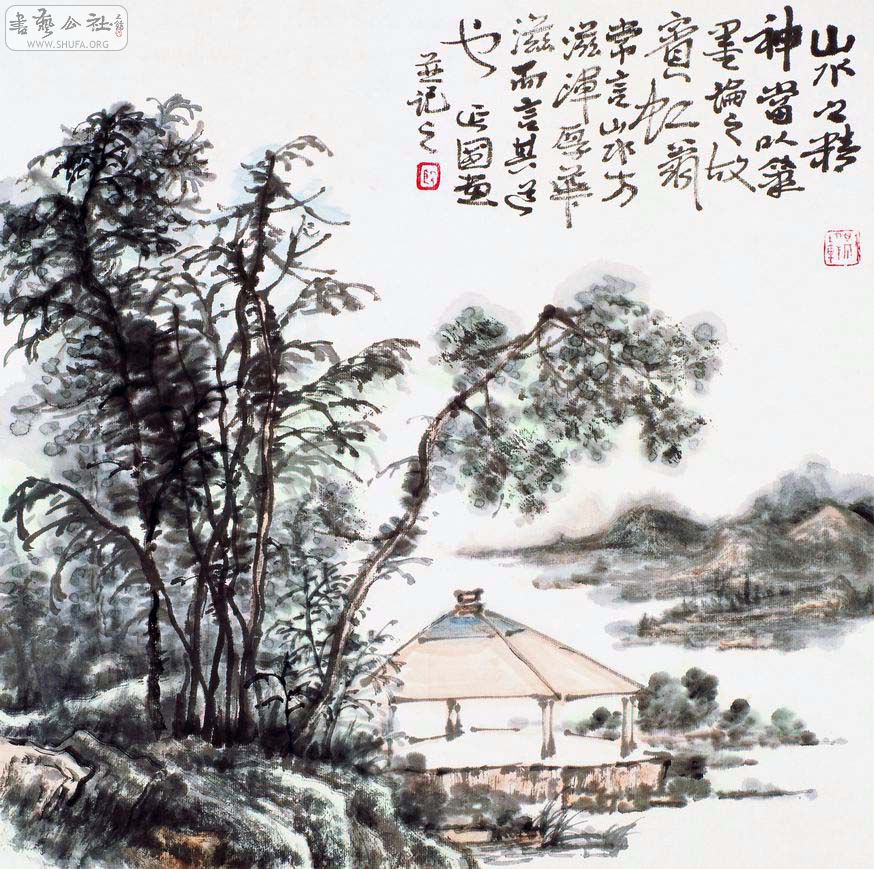 山水之精
神當以筆
墨論之故
賓虹翁
常言山水方
滋渾厚華
滋而言其道
也 作圖畫
並記之
書藝公社
WWW.SHUFA.ORG